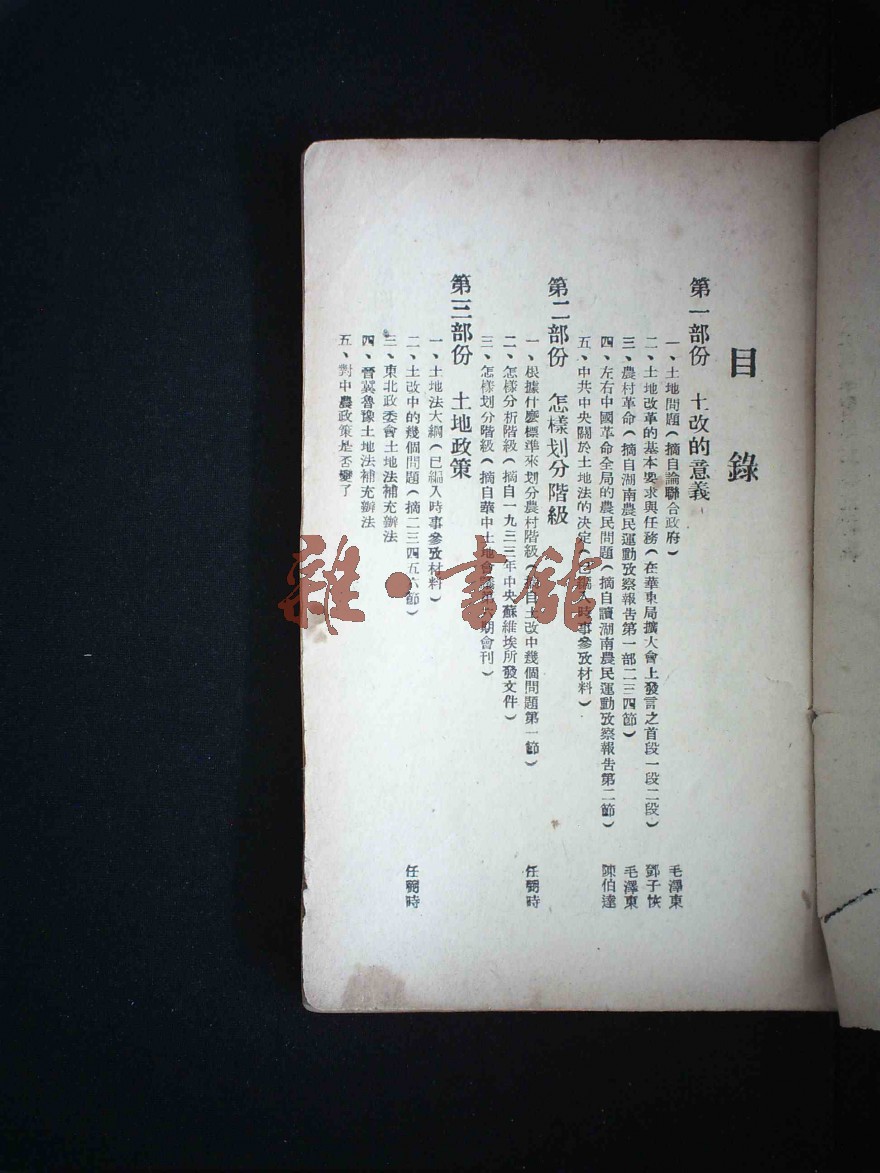 目錄
第一部份 土改的意義
一、土地問題(摘自論聯合政府) 毛澤東
二、土地改革的基本要求與任務(在華東局擴大會上發言之首段一段二段) 鄧子恢
三、農村革命(摘自湖南農民運動攷察報告第一部二三四節) 毛澤東
四、左右中國革命全局的農民問題(摘自讀湖南農民運動攷察報告第二節) 陳伯達
五、中共中央關於土地法的決定(已編入時事參攷材料)
第二部份 怎樣划分階級
一、根據什麼標準來划分農村階級(摘自土改中幾個問題第一節) 任弼時
二、怎樣分析階級(摘自一九三三年中央蘇維埃所發文件)
三、怎樣划分階級(摘自華中土地會議第六期會刊)
第三部份 土地政策
一、土地法大綱(已編入時事參攷材料)
二、土改中的幾個問題(摘二三四五六節) 任弼時
三、東北政委會土地法補充辦法
四、晉冀魯豫土地法補充辦法
五、對中農政策是否變了
雜·書館